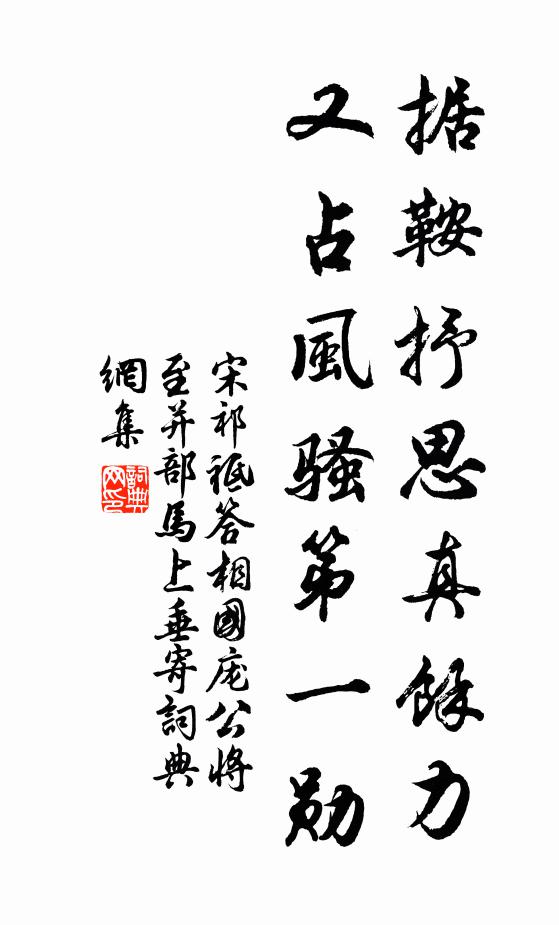 据鞍抒思真餘力
又占風騷第一勋
宋祁祗答相國庞公將
至并部馬上垂寄詞典
網集
詞典
网印